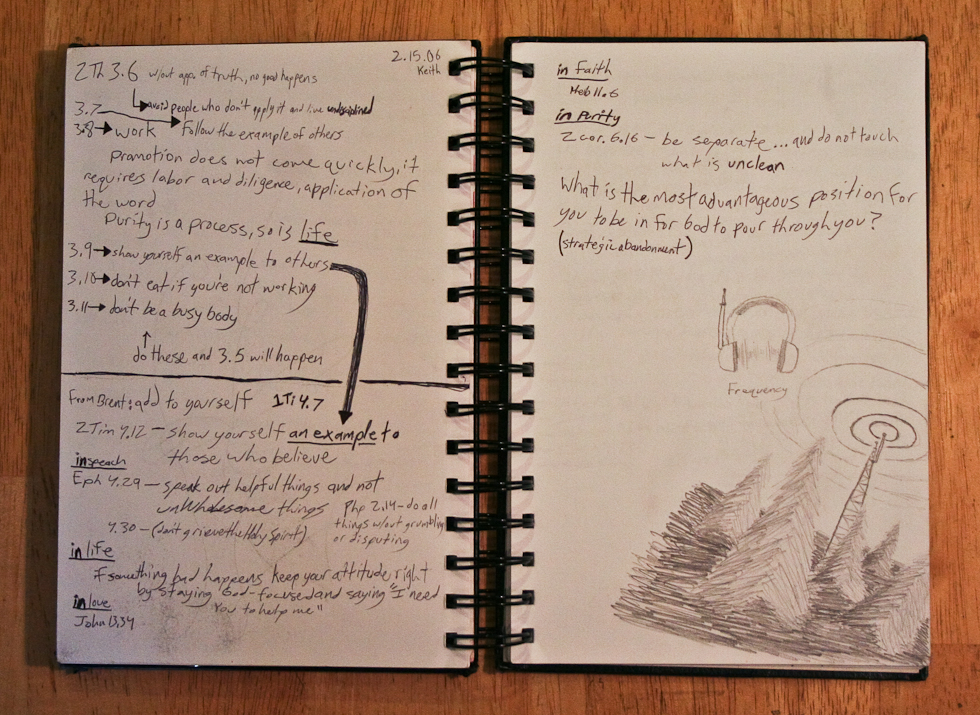 2.15.06
Keith
2Th 3.6 w/out app. of truth, no good happens
avoid people who don't apply it and live undisciplined
3.7 Follow the example of others
3.8 → work
Promotion does not come quickly, it
requires labor and diligence, application of
the word
Purity is a process, so is life
3.9 → show yourself an example to others
3.10 → don't eat if you're not working
3.11 → don't be a busy body
↑
do these and 3.5 will happen
From Brent: add to yourself 1Ti 4.7
2Tim 4.12 – show yourself an example to
those who believe
in speach
Eph 4.29 – speak out helpful things and not
unwholesome things
Php 2.14 – do all
things w/out grumbling
or disputing
4.30 – (don't grieve the Holy Spirit)
in life
If something bad happens, keep your attitude right
by staying God-focused and saying "I need
You to help me"
in love
John 13.34
in faith
Heb 11.6
in purity
2 Cor. 6.16 – be separate... and do not touch
what is unclean
What is the most advantageous position for
you to be in for God to pour through you?
(strategic abandonment)
Frequency